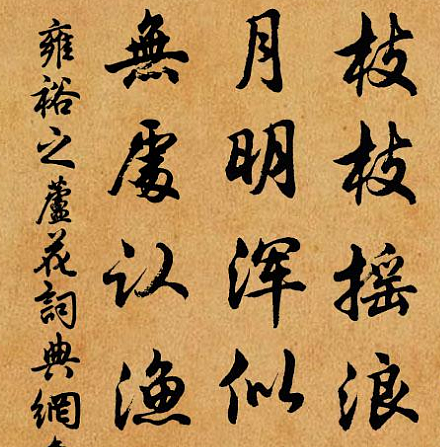 枝枝摇浪
月明浑似
無處认渔
雍裕之蘆花詞典網